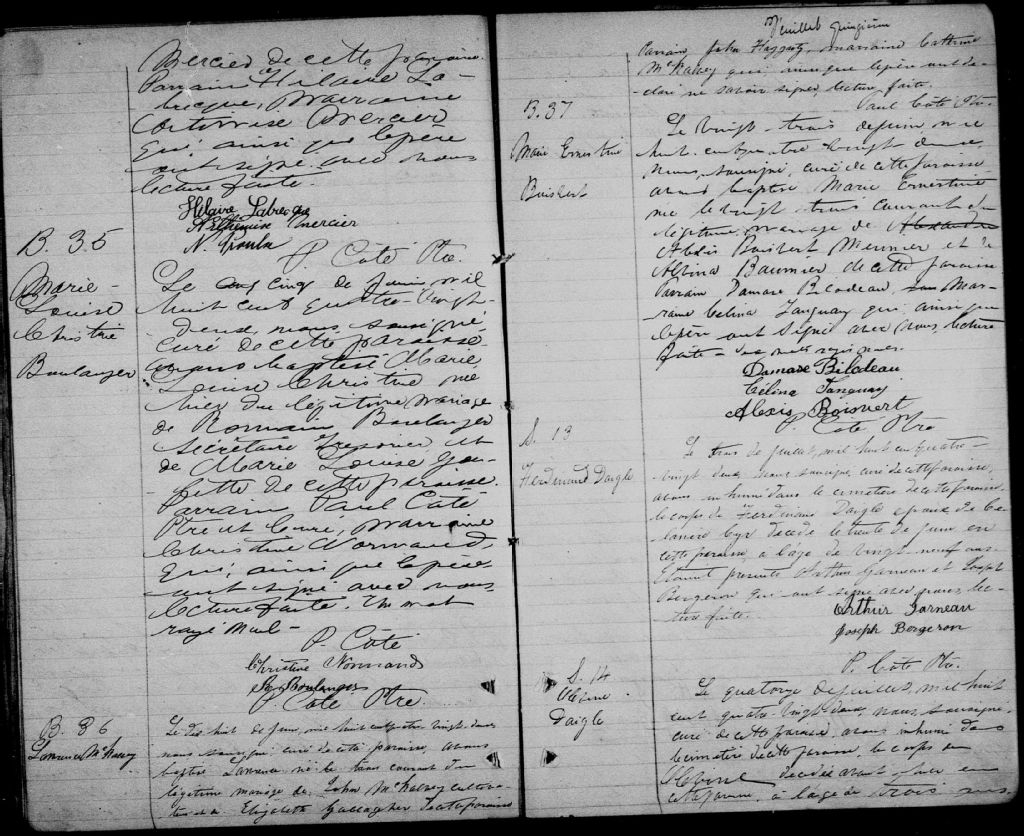 Mercier de cette paroisse.
Parrain Hilaire La-
brecque, Marraine
Arthemise Mercier
qui, ainsi que le père
ont signé avec nous
lecture faite.
Hilaire Labrecque
Arthemise Mercier
P. Côté Ptre.
B. 35
Marie-
Louise
Christine
Boulanger
Le cinq de juin, mil
huit cent quatre-vingt-
douze, nous, soussigné,
curé de cette paroisse
avons baptisé Marie
Louise Christine née
hier du légitime mariage
de Romain Boulanger
Secrétaire Trésorier et
de Marie Louise
de cette paroisse.
Parrain Paul Côté
Ptre et Curé, Marraine
Christine Normand,
qui, ainsi que le père
ont signé avec nous
lecture faite. Un mot
rayé nul-
P. Côté
Christine Normand
R. Boulanger
P. Côté Ptre.
B. 36
Lawrence McKalvey
Le dix huit de juin, mil huit cent quatre vingt-douze
nous soussigné curé de cette paroisse, avons
baptisé Lawrence né le courant du
légitime mariage de John McKalvey cultiva-
teur et d Elizabeth Gallagher de cette paroisse
Feuillet quinzième
Parrain, John Haggarty, marraine Catherine
McKalvey qui, ainsi que le père ont dé-
claré ne savoir signer, lecture faite.
Paul Côté Ptre.
B. 37
Marie Ernestine
Boisvert
Le vingt-trois de juin mil
huit-cent quatre-vingt douze,
Nous, soussigné, curé de cette paroisse
avons baptisé Marie Ernestine
née le vingt trois courant du
légitime mariage de Alexandre
Alexis Boisvert Meunier et de
Alphina Baumier de cette paroisse
Parrain Damase Bilodeau, Mar-
raine Célina Tanguay qui ainsi que
le père ont signé avec Nous, lecture
faite
Damase Bilodeau
Célina Tanguay
Alexis Boisvert
P. Côté Ptre
S. 13
Ferdinand Daigle
Le trois de juillet, mil huit cent quatre-
vingt douze, nous soussigné, curé de cette paroisse,
avons inhumé dans le cimetière de cette paroisse
le corps de Ferdinand Daigle époux de
Cyr décédé le trente de juin en
cette paroisse, à l'âge de vingt-neuf ans.
Etaient présents Arthur Garneau et Joseph
Bergeron qui ont signé avec nous, lec-
ture faite.
Arthur Garneau
Joseph Bergeron
P. Côté Ptre.
S. 14
Daigle
Le quatorze de juillet, mil huit
cent quatre-vingt douze, nous, soussigné,
curé de cette paroisse avons inhumé dans
le cimetière de cette paroisse, le corps de
décédée avant hier en
cette paroisse, à l'âge de trois ans